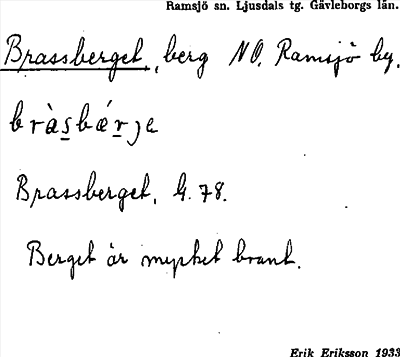 Ramsjö sn. Ljusdals tg. Gävleborgs län.
Brassberget, berg NO. Ramsjö by.
bràs̲bǽr̲je
Brassberget, G. 78.
Berget är mycket brant.
Erik Eriksson 1933